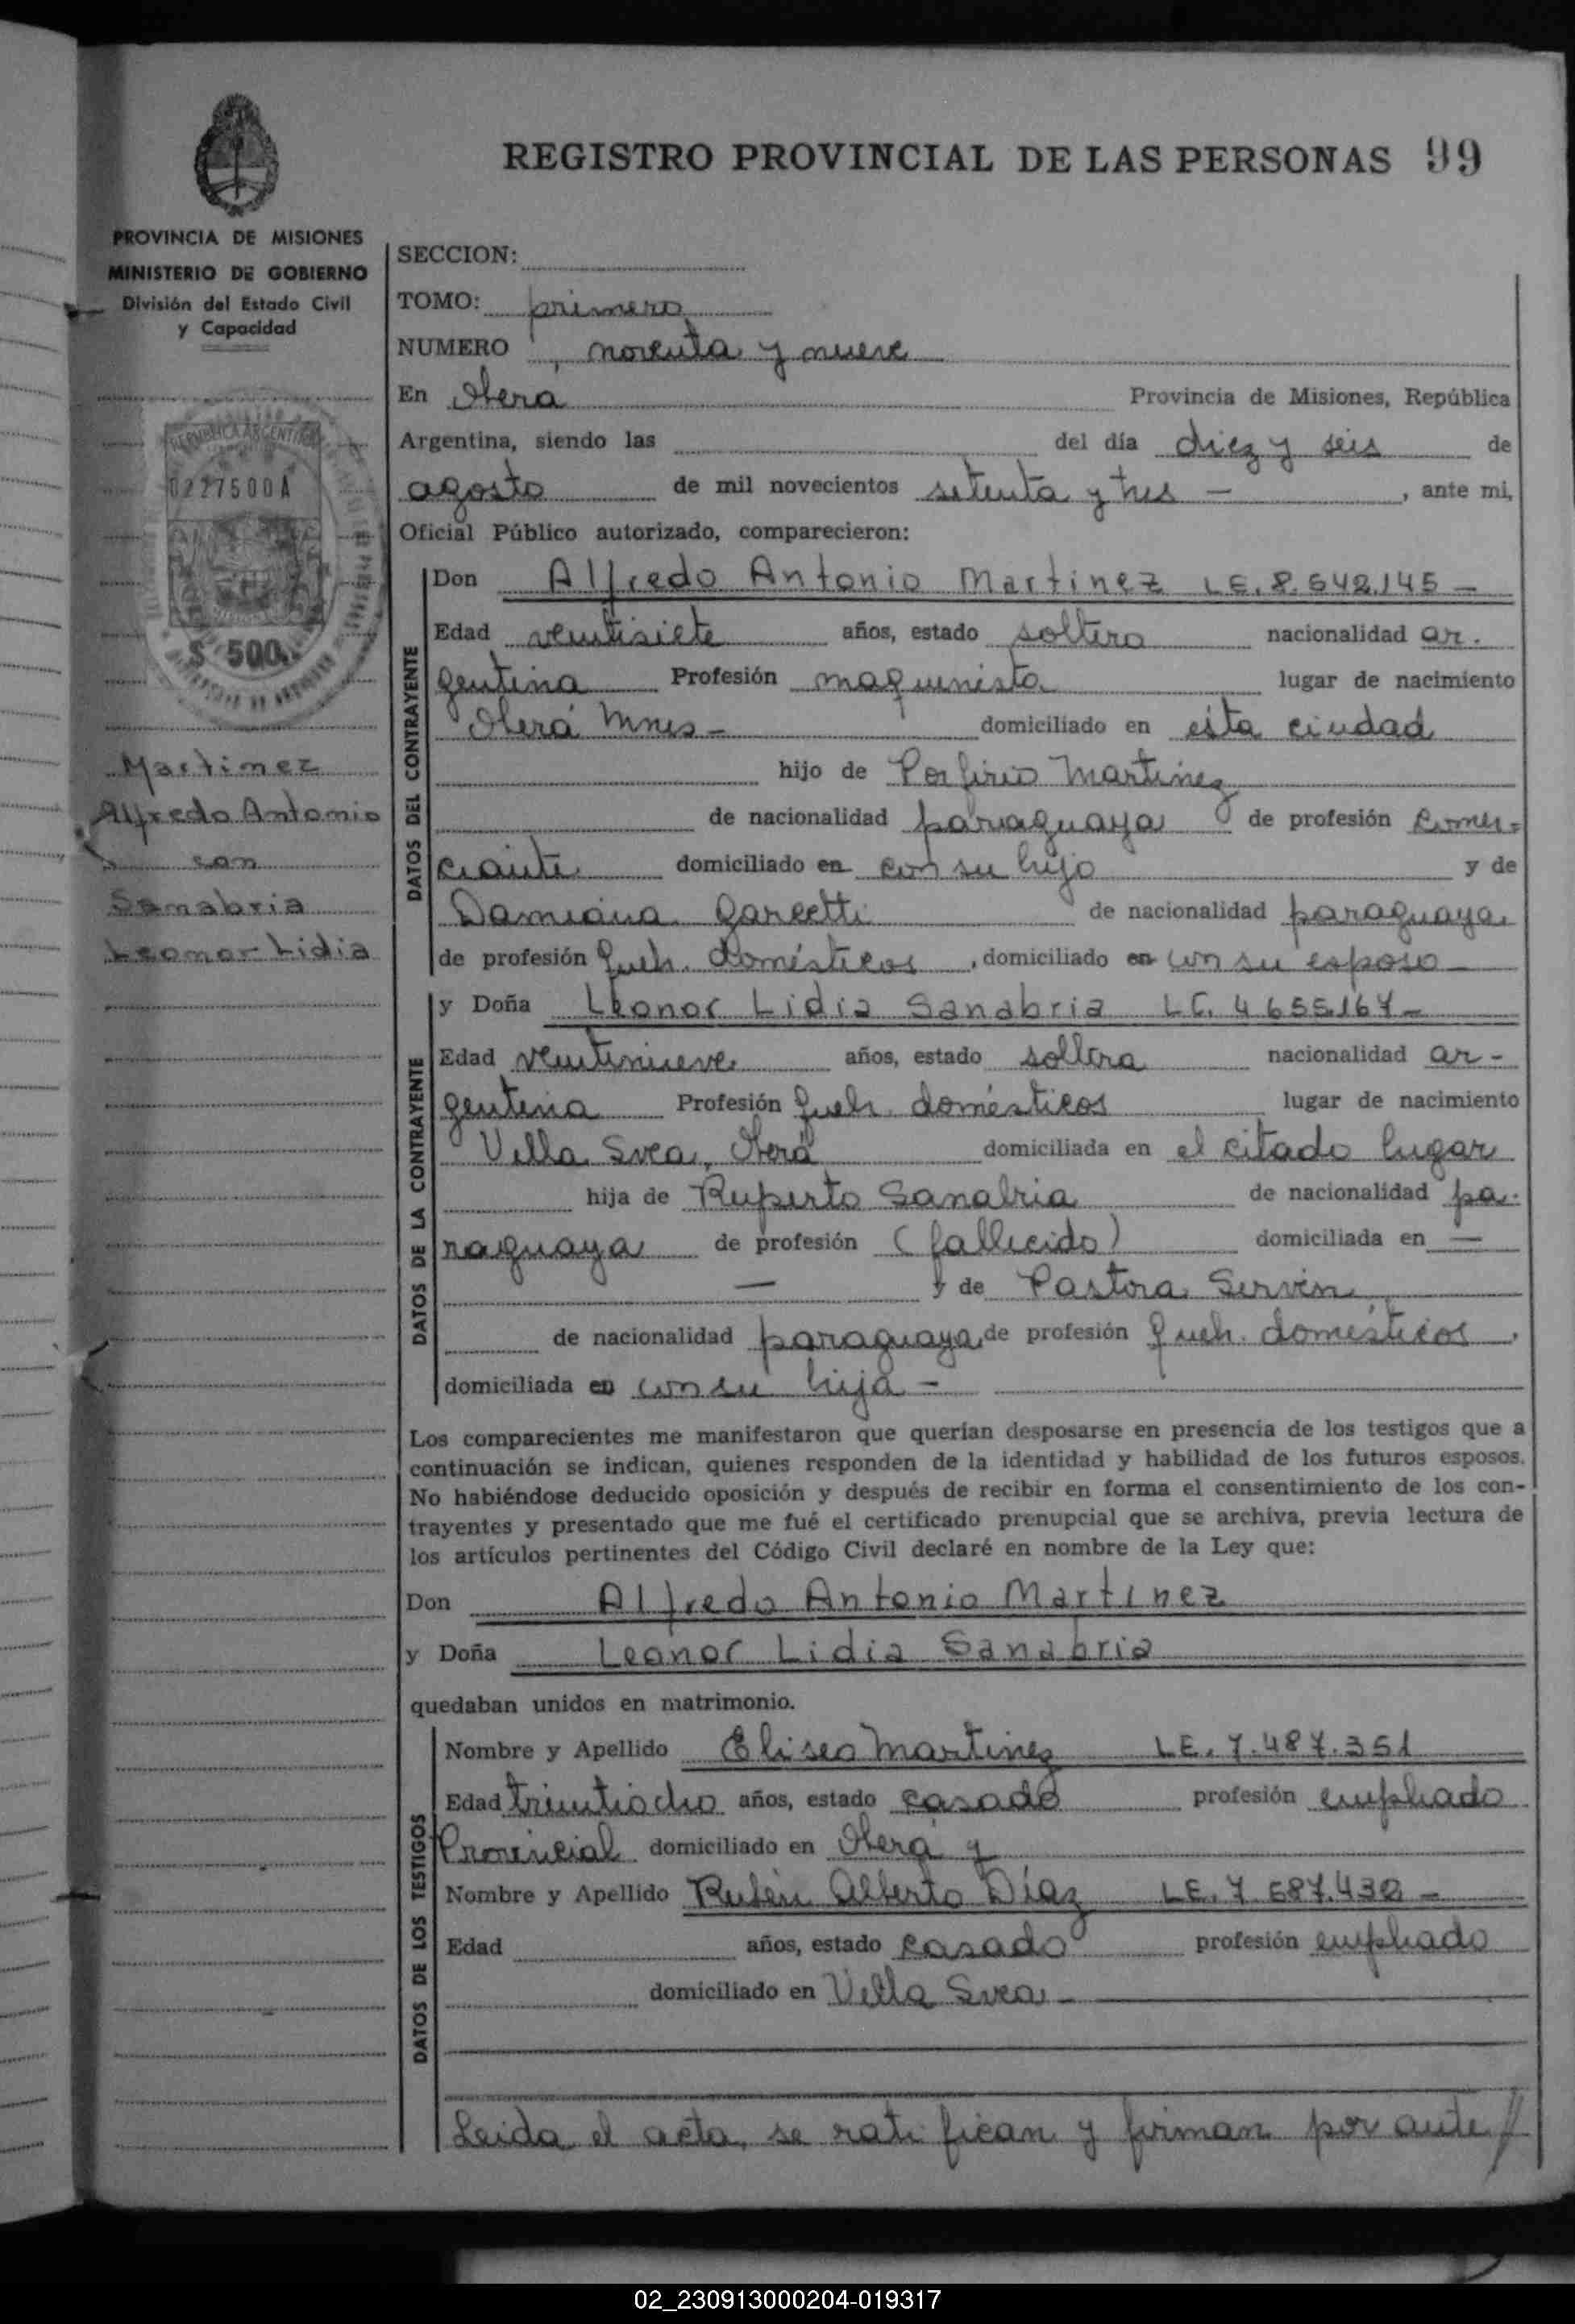 REGISTRO PROVINCIAL DE LAS PERSONAS 99
PROVINCIA DE MISIONES
MINISTERIO DE GOBIERNO
División del Estado Civil
y Capacidad
REPUBLICA ARGENTINA
0227500A
$ 500
Martinez
Alfredo Antonio
con
Sanabria
Leonor Lidia
SECCION:
TOMO: primero
NUMERO noventa y nueve
En Oberá Provincia de Misiones, República
Argentina, siendo las del día diez y seis de
agosto de mil novecientos setenta y tres — , ante mi,
Oficial Público autorizado, comparecieron:
DATOS DEL CONTRAYENTE
Don Alfredo Antonio Martinez LE. 8.542.145 —
Edad veintisiete años, estado soltero nacionalidad ar-
gentina Profesión maquinista lugar de nacimiento
Oberá Mnes – domiciliado en esta ciudad
hijo de Porfirio Martinez
de nacionalidad paraguaya de profesión comer-
ciante domiciliado en con su hijo y de
Damiana de nacionalidad paraguaya
de profesión queh. domésticos , domiciliado en con su esposo —
DATOS DE LA CONTRAYENTE
y Doña Leonor Lidia Sanabria LC. 4.655.167 –
Edad veintinueve años, estado soltera nacionalidad ar-
gentina Profesión queh. domésticos lugar de nacimiento
Villa Svea, Oberá domiciliada en el citado lugar
hija de Ruperto Sanabria de nacionalidad pa-
raguaya de profesión (fallecido) domiciliada en —
— y de Pastora Servin
de nacionalidad paraguaya, de profesión queh. domésticos ,
domiciliada en con su hija –
Los comparecientes me manifestaron que querían desposarse en presencia de los testigos que a
continuación se indican, quienes responden de la identidad y habilidad de los futuros esposos.
No habiéndose deducido oposición y después de recibir en forma el consentimiento de los con-
trayentes y presentado que me fué el certificado prenupcial que se archiva, previa lectura de
los artículos pertinentes del Código Civil declaré en nombre de la Ley que:
Don Alfredo Antonio Martinez
y Doña Leonor Lidia Sanabria
quedaban unidos en matrimonio.
DATOS DE LOS TESTIGOS
Nombre y Apellido Eliseo Martinez LE. 7.487.351
Edad treintiocho años, estado casado profesión empleado
Provincial domiciliado en Oberá y
Nombre y Apellido Rubén Alberto Díaz LE. 7.687.430 –
Edad años, estado casado profesión empleado
domiciliado en Villa Svea –
Leida el acta, se ratifican y firman por ante //
02_230913000204-019317